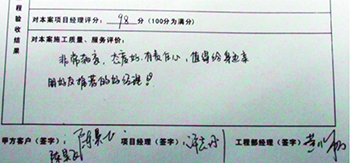 程验收结果
对本案项目经理评分：98 分（100分为满分）
对本案施工质量、服务评价：
非常满意，态度好，有责任心，值得给身边亲
朋好友推荐的好经理！
甲方客户（签字） 项目经理（签字） 工程部经理（签字）